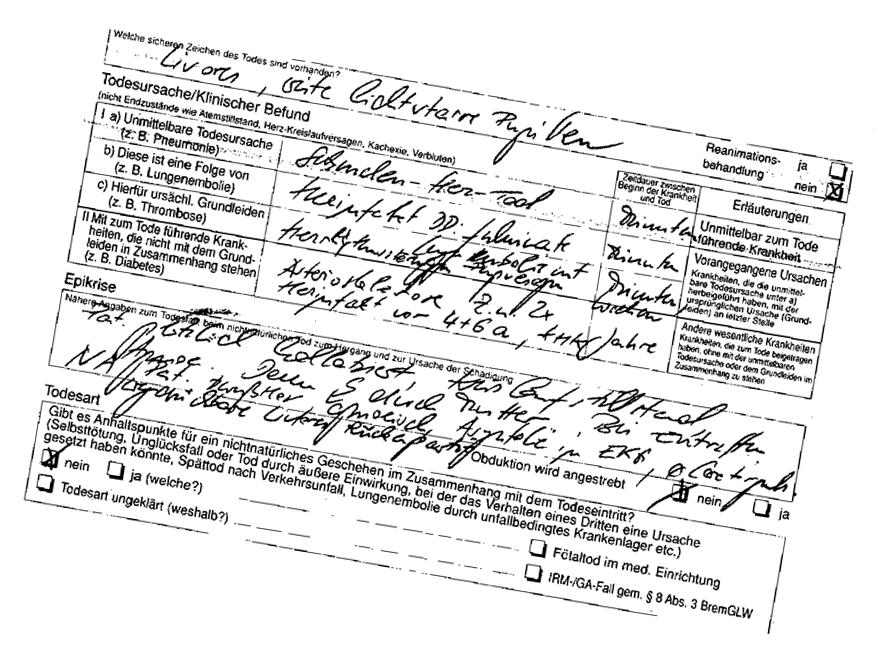 Welche sicheren Zeichen des Todes sind vorhanden?
Livores, weite lichtstarre Pupillen
Reanimations-
behandlung
ja
nein
Todesursache/Klinischer Befund
(nicht Endzustände wie Atemstillstand, Herz-Kreislaufversagen, Kachexie, Verbluten)
Zeitdauer zwischen
Beginn der Krankheit
und Tod
Erläuterungen
I a) Unmittelbare Todesursache
(z. B. Pneumonie)
Sekunden-Herz-Tod
Minuten
Unmittelbar zum Tode
führende Krankheit
b) Diese ist eine Folge von
(z. B. Lungenembolie)
Herzinfarkt DD. fulminante
Lungenembolie mit
Minuten
Vorangegangene Ursachen
Krankheiten, die die unmittel-
bare Todesursache unter a)
herbeigeführt haben, mit der
ursprünglichen Ursache (Grund-
leiden) an letzter Stelle
c) Hierfür ursächl. Grundleiden
(z. B. Thrombose)
Herzrhythmusstörungen
Minuten/
Wochen
II Mit zum Tode führende Krank-
heiten, die nicht mit dem Grund-
leiden in Zusammenhang stehen
(z. B. Diabetes)
Arteriosklerose, Z.n. 2x
Herzinfarkt vor 4+6a,
Jahre
Andere wesentliche Krankheiten
Krankheiten, die zum Tode beigetragen
haben, ohne mit der unmittelbaren
Todesursache oder dem Grundleiden im
Zusammenhang zu stehen
Epikrise
Nähere Angaben zum Todesfall, beim nichtnatürlichen Tod zum Hergang und zur Ursache der Schädigung
Pat. plötzlich kollabiert, Kreislaufstillstand
durch Mutter. Bei Eintreffen
NA Pat. bewußtlos, apnoeisch, Asystolie im EKG,
Todesart
Obduktion wird angestrebt
nein
ja
Gibt es Anhaltspunkte für ein nichtnatürliches Geschehen im Zusammenhang mit dem Todeseintritt?
(Selbsttötung, Unglücksfall oder Tod durch äußere Einwirkung, bei der das Verhalten eines Dritten eine Ursache
gesetzt haben könnte, Spättod nach Verkehrsunfall, Lungenembolie durch unfallbedingtes Krankenlager etc.)
nein
ja (welche?)
Todesart ungeklärt (weshalb?)
Fötaltod im med. Einrichtung
IRM-/GA-Fall gem. § 8 Abs. 3 BremGLW